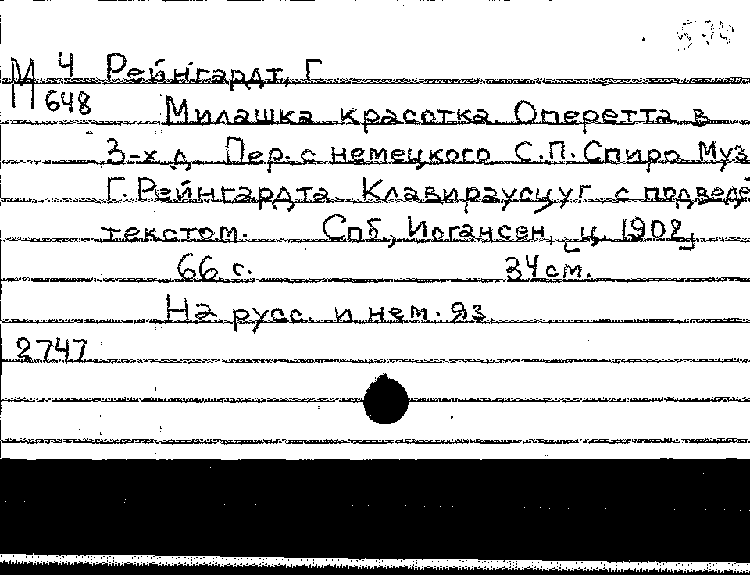 М 4 Рейнгардт, Г
648
Милашка красотка. Оперетта в
3-х д. Пер. с немецкого С.П. Спиро Муз
Г. Рейнгардта Клавираусцуг с подведе
текстом. Спб., Иогансен, [ц. 1902]
66 с. 34 см.
На русс. и нем. яз
2747